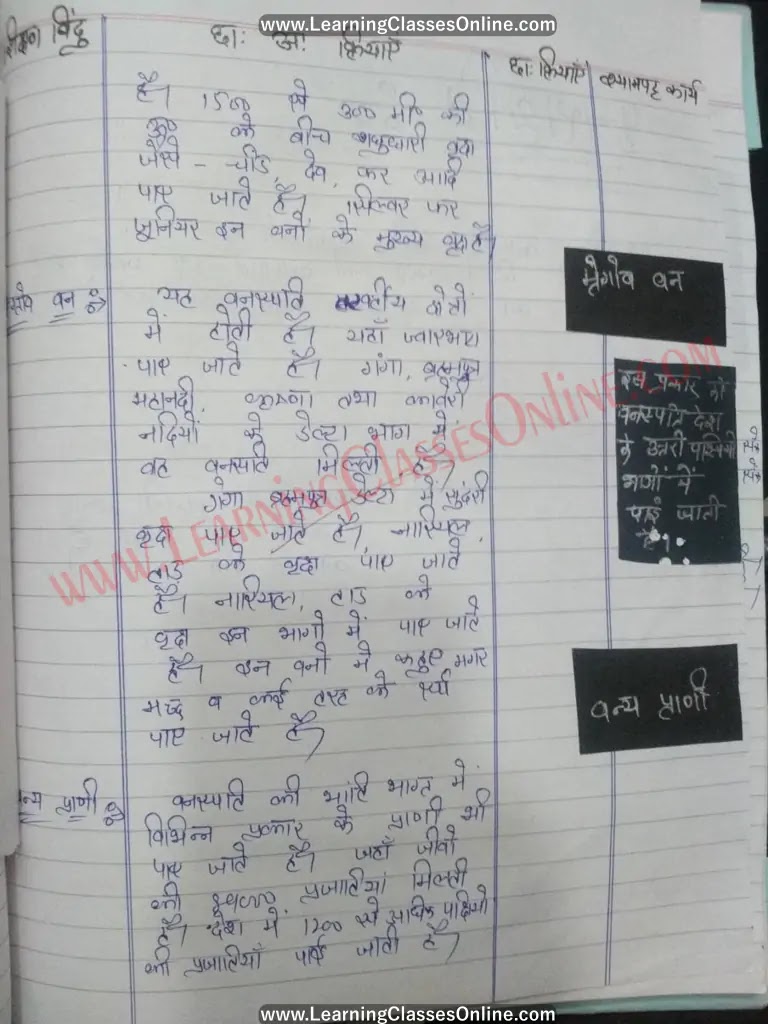 www.LearningClassesOnline.com
शिक्षण बिंदु
छा: अ: क्रियाएं
छा: क्रियाएं
श्यामपट्ट कार्य
है। 1500 से 3000 मी० की
के बीच शंकुधारी वृक्ष
जैसे - चीड, देव, फर आदि
पाए जाते है। सिल्वर फर
जुनियर इन वनों के मुख्य वृक्ष है।
मैंग्रोव वन
वन ⇒
यह वनस्पति तटवर्तीय क्षेत्रो
में होती है। यहाँ ज्वारभाटा
पाए जाते है। गंगा, ब्रह्मपुत्र
महानदी, कृष्णा तथा कावेरी
नदियों के डेल्टा भाग में
वह वनस्पति मिलती है।
गंगा ब्रह्मपुत्र डेल्टा में सुंदरी
वृक्ष पाए जाते है। नारियल,
ताड के वृक्ष पाए जाते
है। नारियल, ताड के
वृक्ष इन भागो में पाए जाते
है। इन वनो में कछुए मगर
मच्छ व कई तरह के सर्प
पाए जाते है।
इस प्रकार की
वनस्पति देश
के उत्तरी पश्चिमी
भागों में
पाई जाती
है।
वन्य प्राणी
वन्य प्राणी ⇒
वनस्पति की भांति भारत में
विभिन्न प्रकार के प्राणी भी
पाए जाते है। जहाँ जीवो
की प्रजातियां मिलती
है। देश में 1200 से अधिक पक्षियो
की प्रजातियाँ पाई जाती है।
www.LearningClassesOnline.com
www.LearningClassesOnline.com